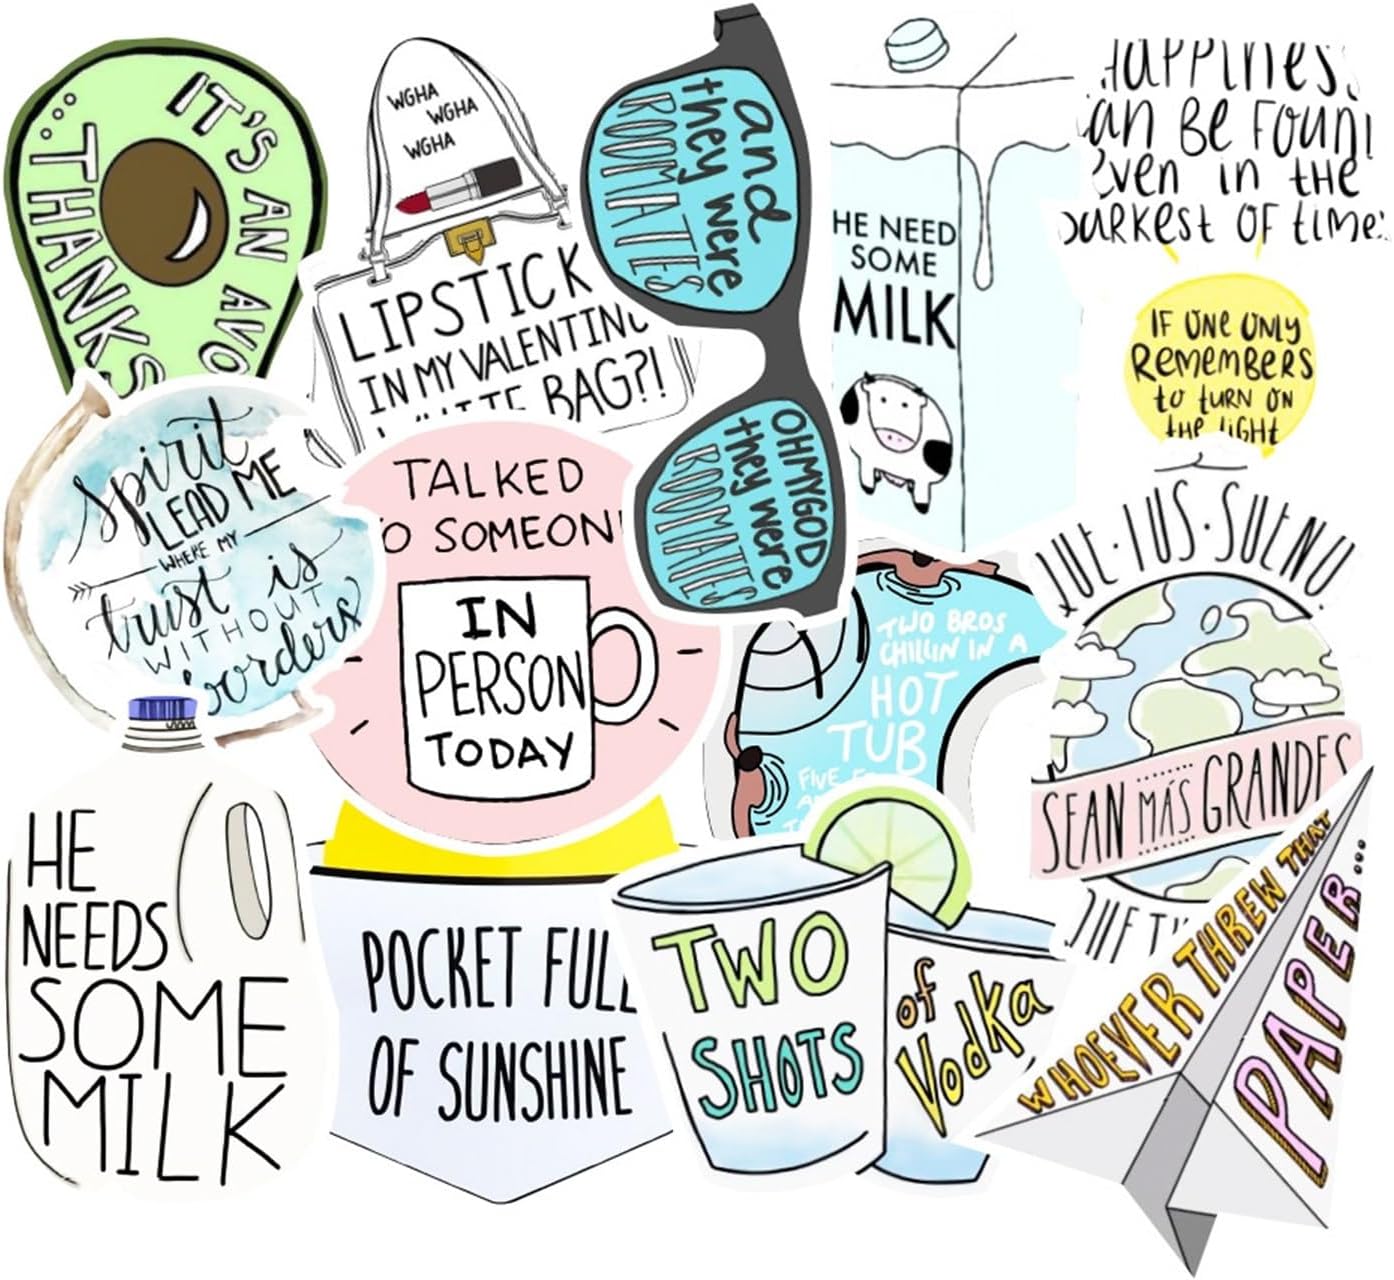 IT'S AN AVO
...THANKS
WGHA
WGHA
WGHA
LIPSTICK
IN MY VALENTINO
WHITE BAG?!
and
they were
ROOMATES
OHMYGOD
they were
ROOMATES
HE NEED
SOME
MILK
HAPPINESS
CAN BE FOUND
even in the
DARKEST OF times
IF ONE ONLY
REMEMBERS
to turn on
the light
spirit
LEAD ME
WHERE MY
trust is
WITHOUT
borders
TALKED
TO SOMEONE
IN
PERSON
TODAY
TWO BROS
CHILLIN IN A
HOT
TUB
FIVE
QUE·TUS·SUEÑO
SEAN MÁS GRANDES
QUE TU
HE
NEEDS
SOME
MILK
POCKET FULL
OF SUNSHINE
TWO
SHOTS
of
Vodka
WHOEVER THREW THAT
PAPER...